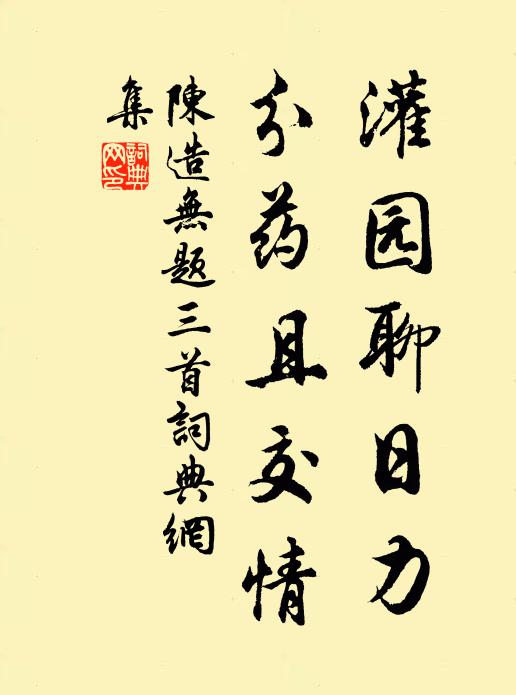 灌园聊日力
分药且交情
陳造無题三首詞典網
集
詞典
网印